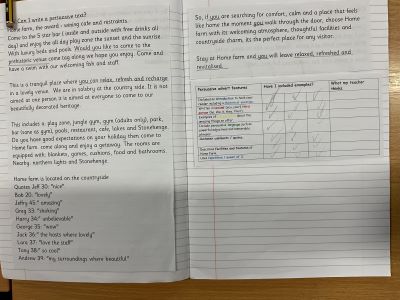 Can I write a persuasive text?
Home farm, the award - wining cafe and restraints.
Come to the 5 star bar ( inside and outside with free drinks all
day) and enjoy the all day play zone the sunset and the sunrise.
With luxury beds and pools. Would you like to come to the
prehistoric venue come tag along we hope you enjoy. Come and
have a swim with our welcoming fish and staff.
This is a tranquil place where you can relax, refresh and recharge
in a lovely venue. We are in solsbry at the country side. It is not
aimed at one person it is aimed at everyone so come to our
beautifully decorated heritage.
This includes a: play zone, jungle gym, gym (adults only), park,
bar (none is gym), pools, restaurant, cafe, lakes and Stonehenge.
Do you have good expectations on your holiday then come to
Home farm. come along and enjoy a getaway. The rooms are
equipped with: blankets, games, cushions, food and bathrooms.
Nearby: northern lights and Stonehenge.
Home farm is located on the countryside
Quotes Jeff 30: "nice"
Bob 20: "lovely"
Jeffry 45:" amazing"
Greg 33: "shining"
Harry 34:" unbelievable"
George 35: "wow"
Jack 36:" the hosts where lovely"
Lara 37: "love the staff"
Tony 38:" so cool"
Andrew 39: "my surroundings where beautiful"
So, if you are searching for comfort, calm and a place that feels
like home the moment you walk through the door, choose Home
farm with its welcoming atmosphere, thoughtful facilities and
countryside charm, its the perfect place for any visitor.
Stay at Home farm and you will leave relaxed, refreshed and
revitalised.
Persuasive advert features
Have I included examples?
What my teacher thinks